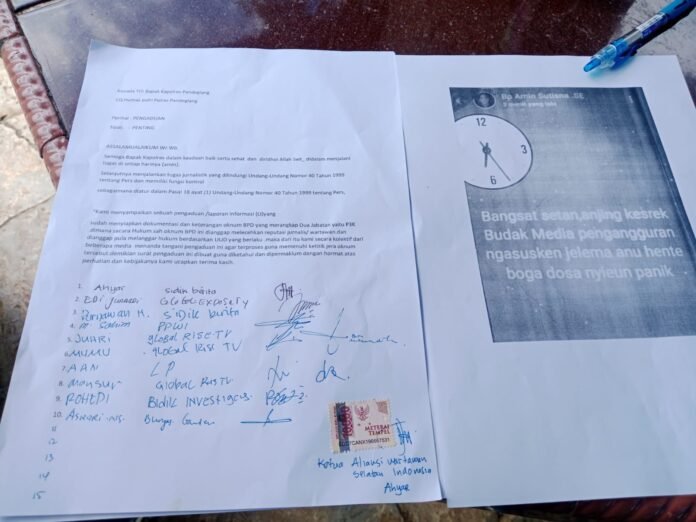 Kepada Yth Bapak Kapolres Pandeglang
CQ Humas polri Polres Pandeglang
Perihal : PENGADUAN
: PENTING
ASSALAMUALAIKUM Wr.Wb.
Semoga Bapak Kapolres dalam keadaan baik serta sehat dan diridhai Allah Swt, didalam menjalani
Tugas di setiap harinya
Selanjutnya menjalankan tugas jurnalistik yang dilindungi Undang-Undang Nomor 40 Tahun 1999
tentang Pers dan memiliki fungsi kontrol
sebagaimana diatur dalam Pasal 18 ayat (1) Undang-Undang Nomor 40 Tahun 1999 tentang Pers,
"Kami menyampaikan sebuah pengaduan /laporan informasi
sudah menyiapkan dokumentasi dan keterangan oknum BPD yang merangkap Dua Jabatan yaitu P3K
dimana secara Hukum sah oknum BPD ini dianggap melecehkan reputasi jurnalis/ wartawan dan
dianggap pula melanggar hukum berdasarkan UUD yang berlaku .maka dari itu kami secara kolektif dari
beberapa media menanda tangani pengaduan ini agar terproses guna memenuhi ketitik jera oknum
tersebut demikian surat pengaduan ini dibuat guna diketahui dan dipermaklum dengan hormat atas
perhatian dan kebijakanya kami ucapkan terima kasih.
1. Ahyar sidik berita
2. EDI
3. H. Sidik berita
4. PPWI
5. JUARI global RISE TV
6. MUMU GLOBAL RISE TV
7. AAN LP
8. Mansur Global
9. ROHEDI BIDIK
10.
11
12
13
14
15
METERAI
TEMPEL
Ketua Aliansi wartawan
Selatan Indonesia
Ahyar
Bp Amin Sutisna .SE
yang lalu
12
3
6
Bangsat setan,anjing kesrek
Budak Media pengangguran
ngasusken jelema anu hente
boga dosa nyieun panik